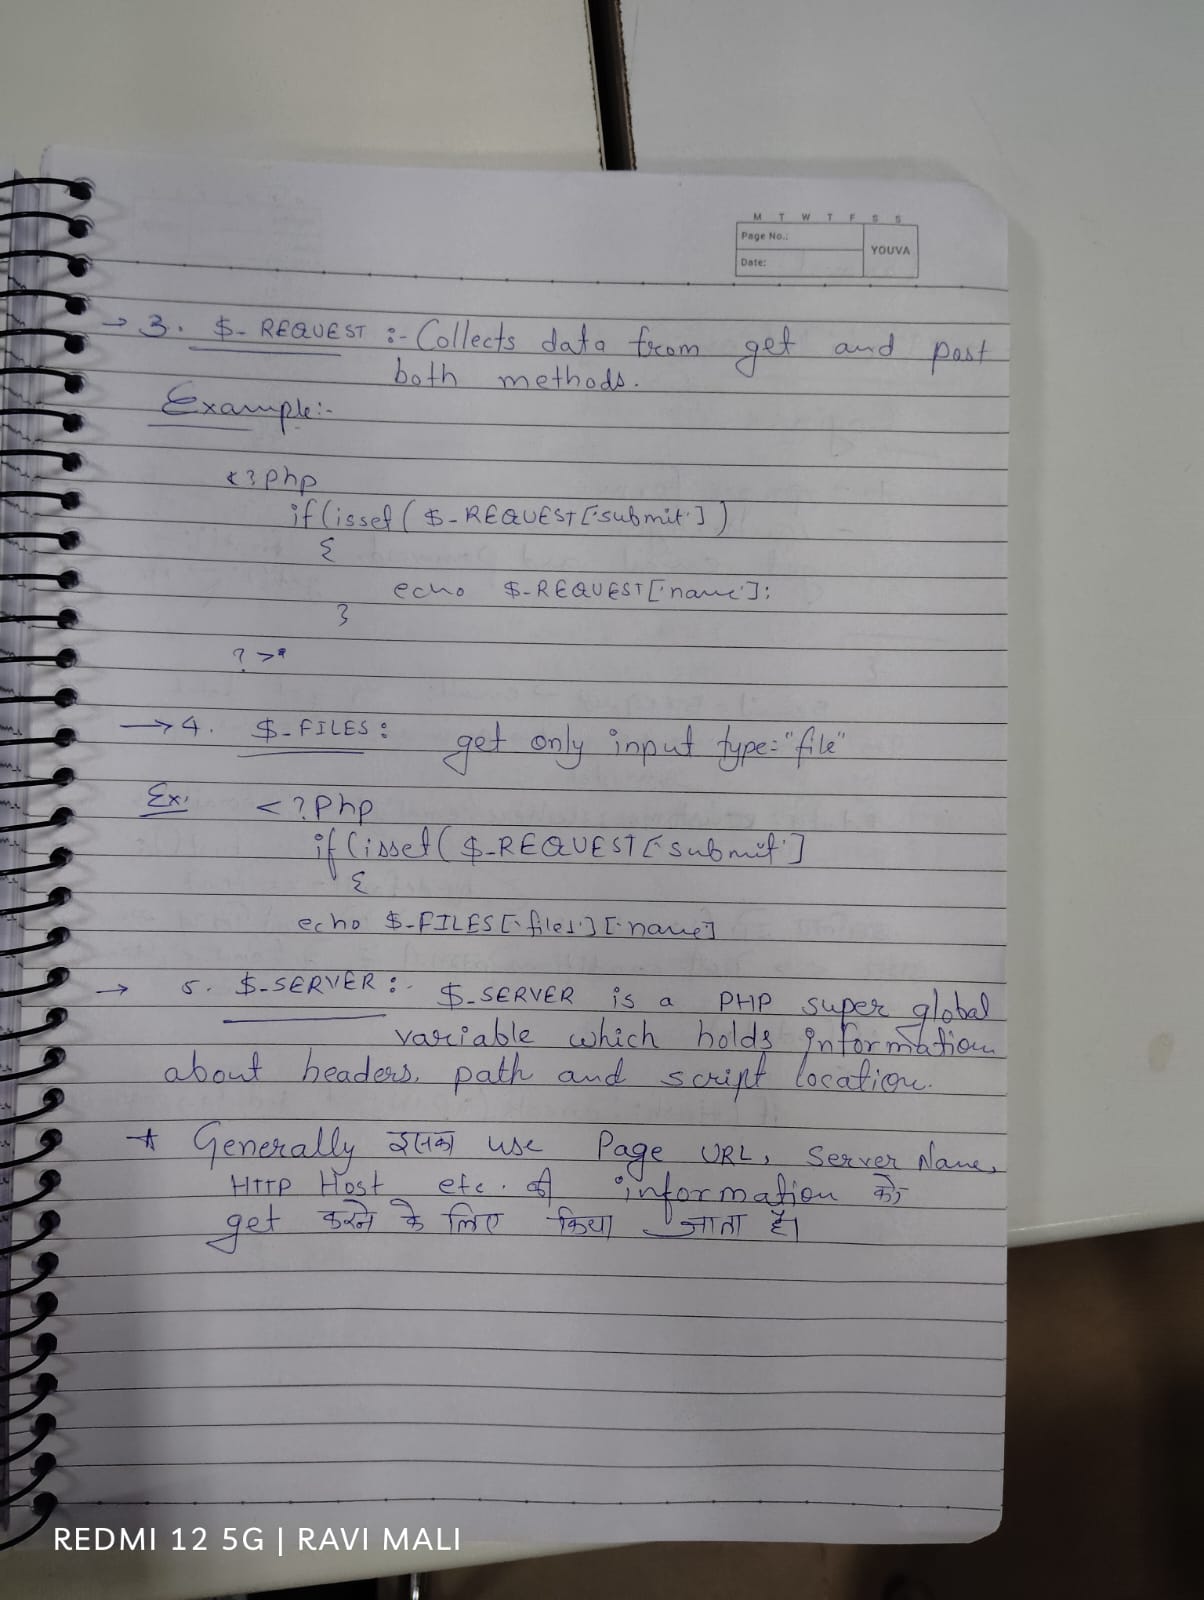 M T W T F S S
Page No.:
YOUVA
Date:
→ 3. $_REQUEST :- Collects data from get and post
both methods.
Example:-
<?php
if(isset($_REQUEST['submit'])
{
echo $_REQUEST['name'];
}
?>
→ 4. $_FILES: get only input type="file"
Ex. <?php
if(isset($_REQUEST['submit']
{
echo $_FILES['files']['name']
→ 5. $_SERVER :- $_SERVER is a PHP super global
variable which holds information
about headers, path and script location.
* Generally इसका use Page URL, Server Name,
HTTP Host etc. की information को
get करने के लिए किया जाता है।
REDMI 12 5G | RAVI MALI